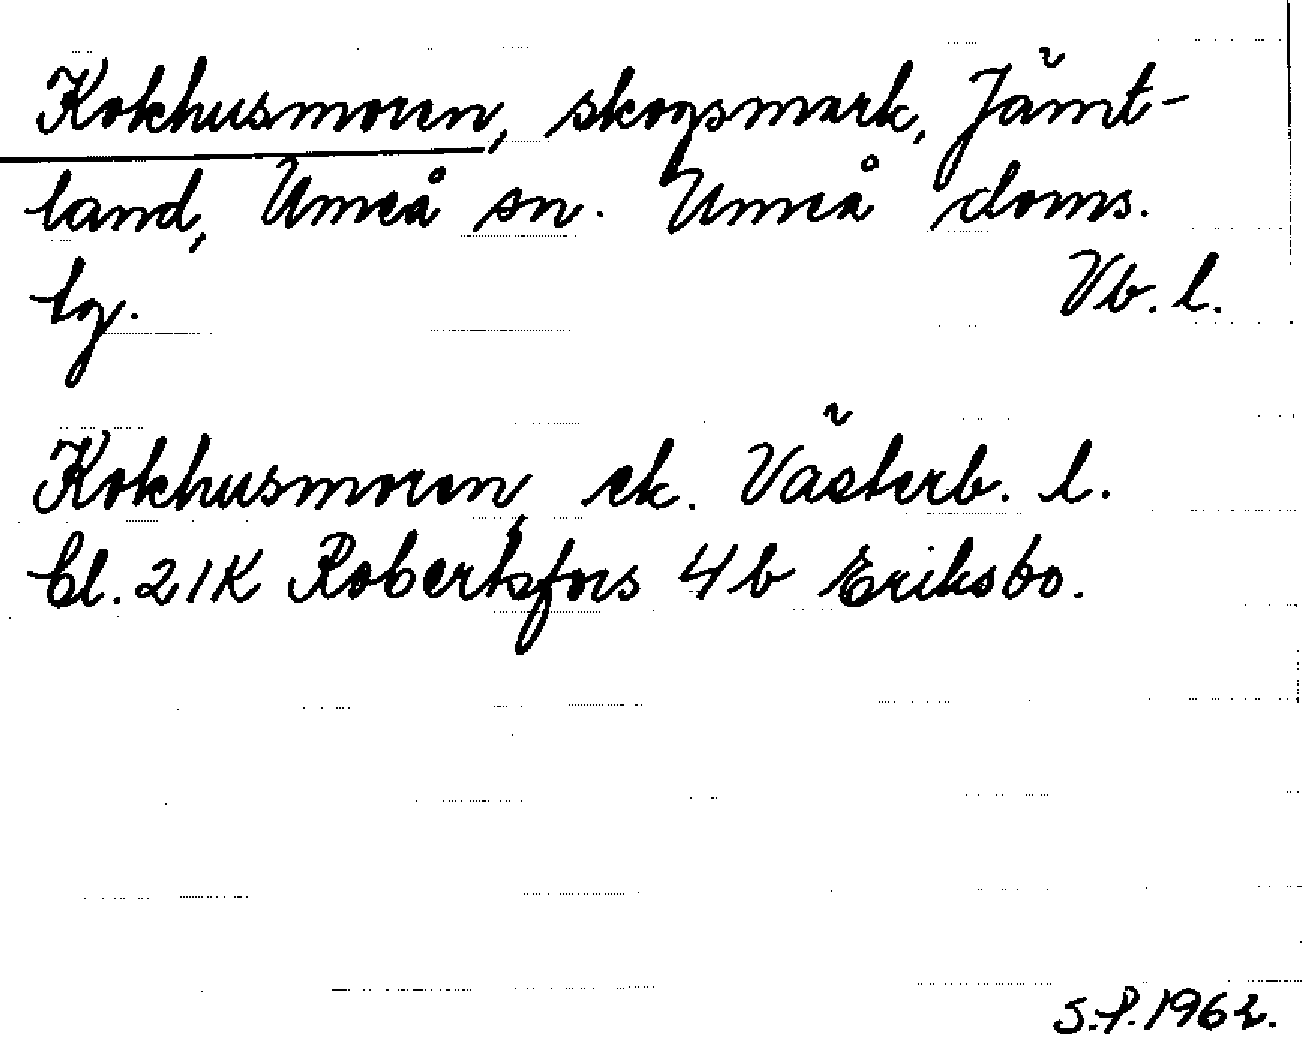 Kokhusmoren, skogsmark, Jämt-
land, Umeå sn. Umeå doms.
lg. Vb. l.
Kokhusmoren, ek. Västerb. l.
bl. 21K Robertsfors 4b Eriksbo.
S.P. 1962.